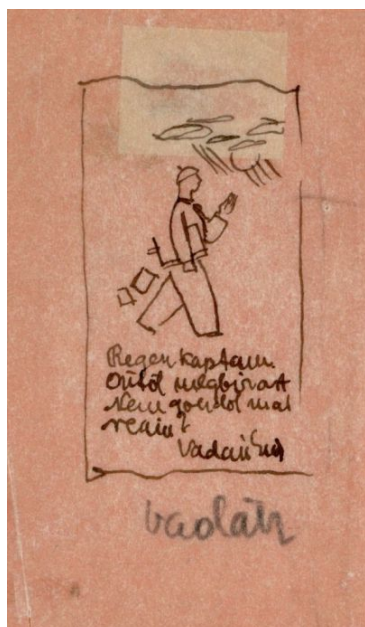 Regen kaptam.
Öntöl megbizást
Nem gondol már
reám?
Vadász
vadász